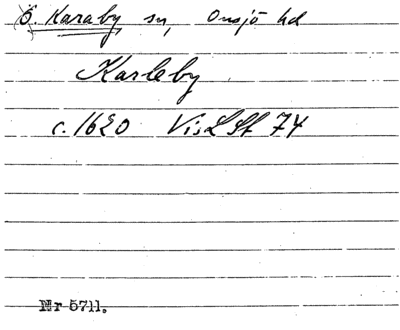 Ö. Karaby sn, Onsjö hd
Karleby
c. 1620 VisLSt 74
Nr 5711.